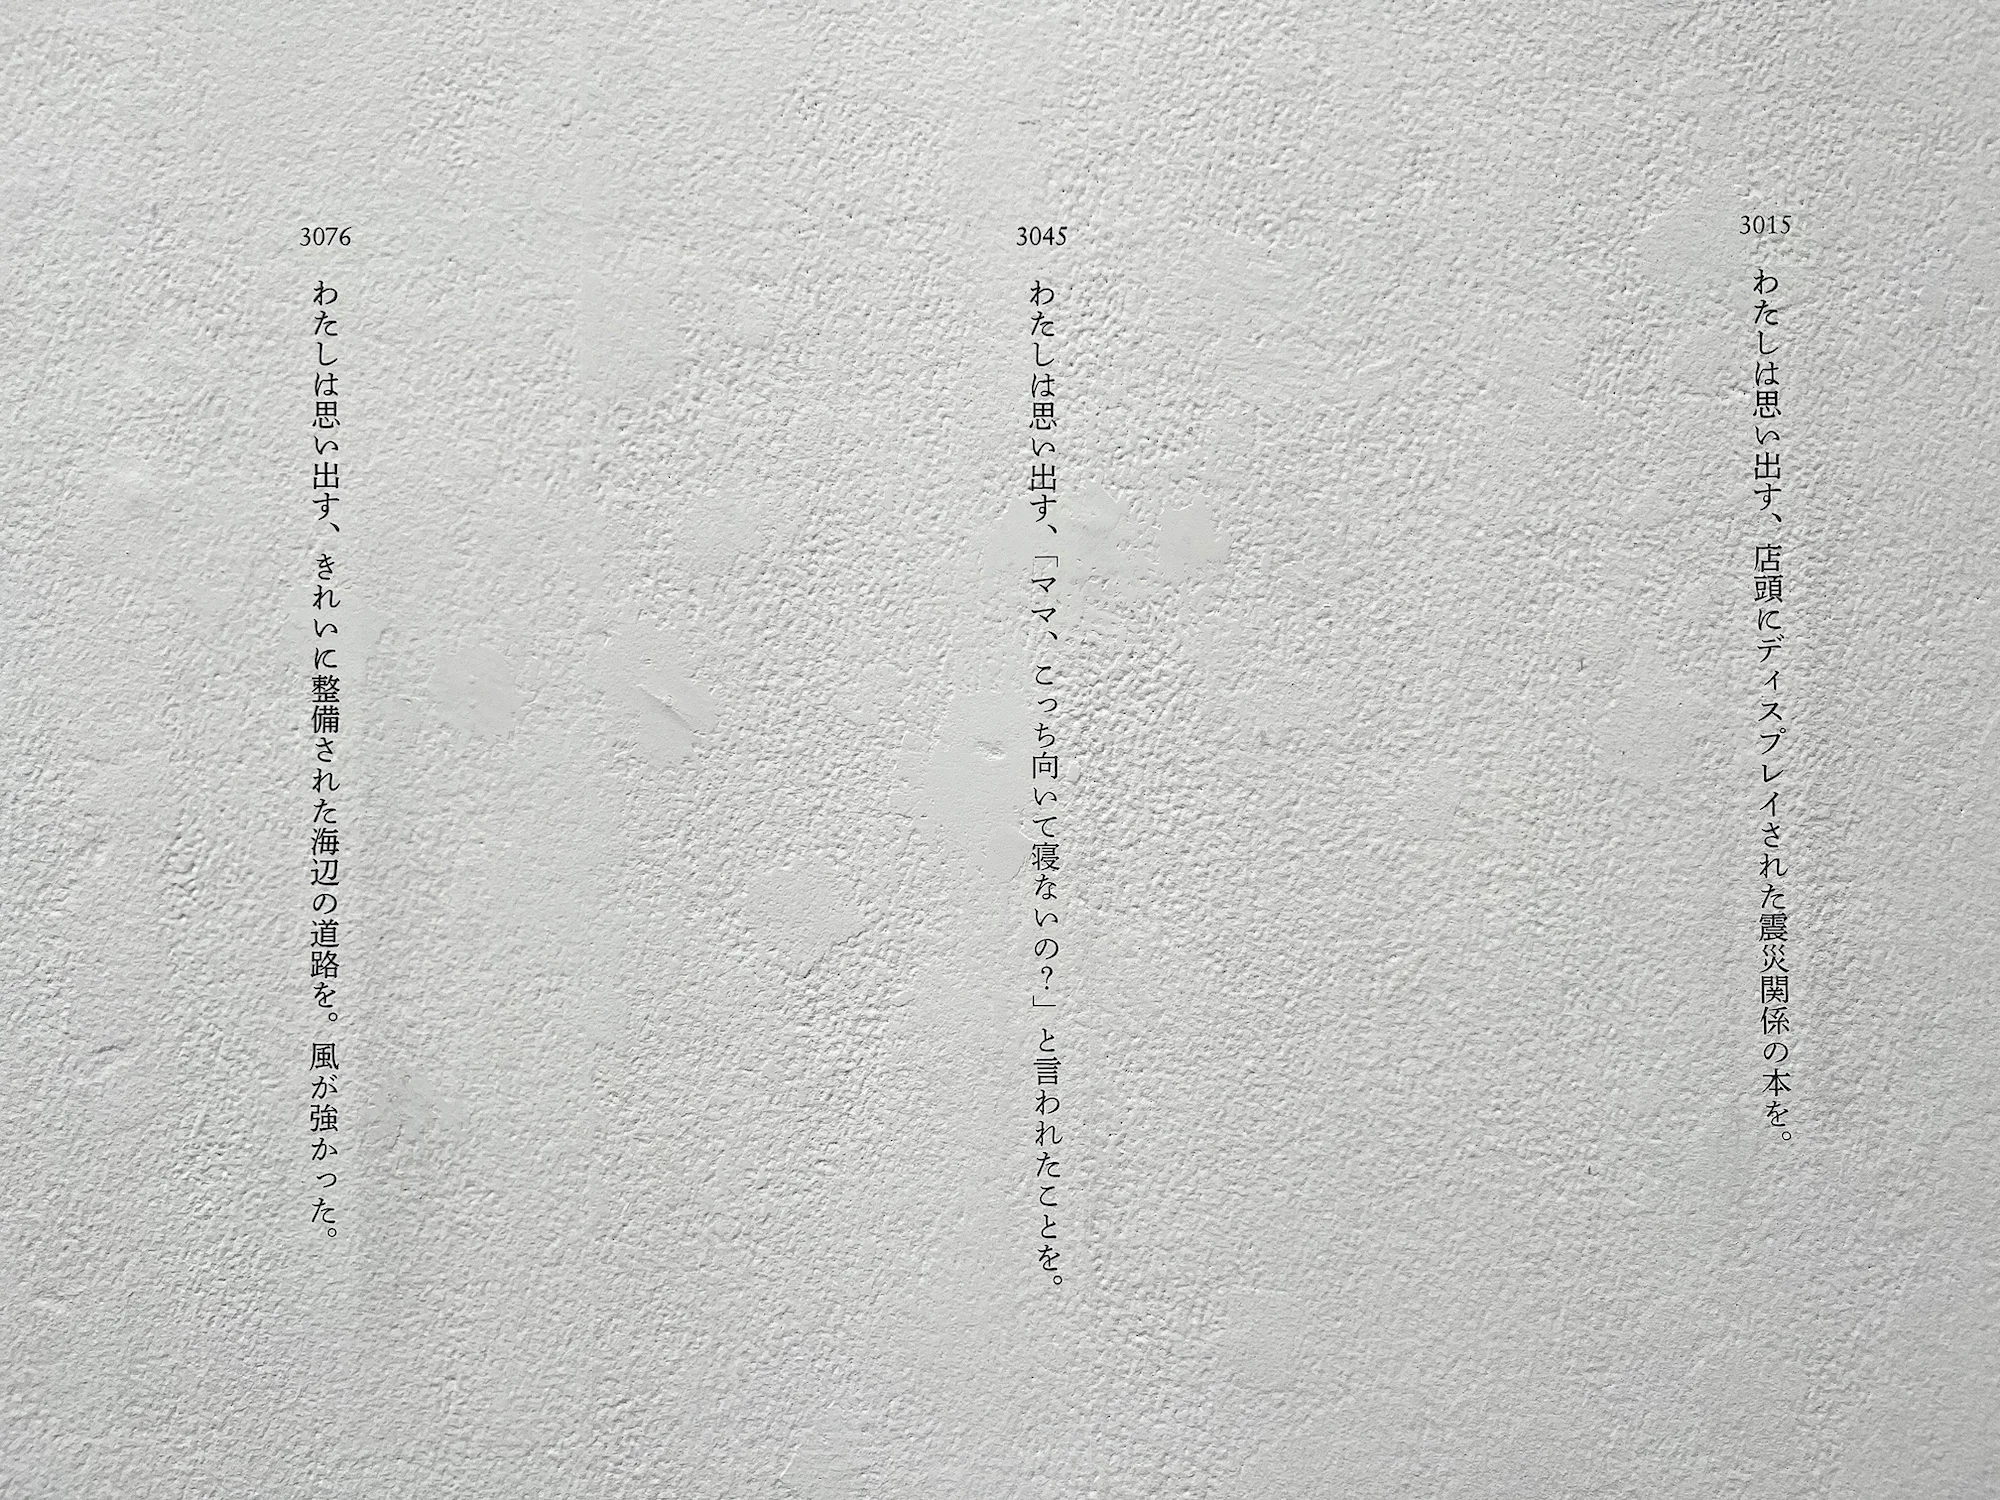 3015
わたしは思い出す、店頭にディスプレイされた震災関係の本を。
3045
わたしは思い出す、「ママ、こっち向いて寝ないの？」と言われたことを。
3076
わたしは思い出す、きれいに整備された海辺の道路を。風が強かった。